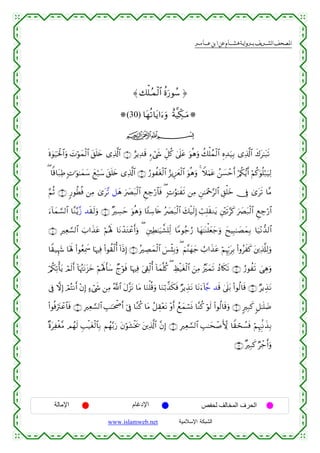 المصحف الشريف برواية هشام عن ابن عامر
﴿ سُورَةُ ٱلۡمُلۡكِ ﴾
* مَكِّيَّةٌ وَءَايَاتُهَا (30) *
بِسۡمِ ٱللَّهِ ٱلرَّحۡمَٰنِ ٱلرَّحِيمِ
تَبَٰرَكَ ٱلَّذِي بِيَدِهِ ٱلۡمُلۡكُ وَهُوَ عَلَىٰ كُلِّ شَيۡءٖ قَدِيرٌ ۝ ٱلَّذِي خَلَقَ ٱلۡمَوۡتَ وَٱلۡحَيَوٰةَ
لِيَبۡلُوَكُمۡ أَيُّكُمۡ أَحۡسَنُ عَمَلٗاۚ وَهُوَ ٱلۡعَزِيزُ ٱلۡغَفُورُ ۝ ٱلَّذِي خَلَقَ سَبۡعَ سَمَٰوَٰتٖ طِبَاقٗاۖ
مَّا تَرَىٰ فِي خَلۡقِ ٱلرَّحۡمَٰنِ مِن تَفَٰوُتٖۖ فَٱرۡجِعِ ٱلۡبَصَرَ هَل تَّرَىٰ مِن فُطُورٖ ۝ ثُمَّ
ٱرۡجِعِ ٱلۡبَصَرَ كَرَّتَيۡنِ يَنقَلِبۡ إِلَيۡكَ ٱلۡبَصَرُ خَاسِئٗا وَهُوَ حَسِيرٞ ۝ وَلَقَد زَّيَّنَّا ٱلسَّمَآءَ
ٱلدُّنۡيَا بِمَصَٰبِيحَ وَجَعَلۡنَٰهَا رُجُومٗا لِّلشَّيَٰطِينِۖ وَأَعۡتَدۡنَا لَهُمۡ عَذَابَ ٱلسَّعِيرِ ۝
وَلِلَّذِينَ كَفَرُواْ بِرَبِّهِمۡ عَذَابُ جَهَنَّمَۖ وَبِئۡسَ ٱلۡمَصِيرُ ۝ إِذَآ أُلۡقُواْ فِيهَا سَمِعُواْ لَهَا شَهِيقٗا
وَهِيَ تَفُورُ ۝ تَكَادُ تَمَيَّزُ مِنَ ٱلۡغَيۡظِۖ كُلَّمَآ أُلۡقِيَ فِيهَا فَوۡجٞ سَأَلَهُمۡ خَزَنَتُهَآ أَلَمۡ يَأۡتِكُمۡ
نَذِيرٞ ۝ قَالُواْ بَلَىٰ قَد جَّآءَنَا نَذِيرٞ فَكَذَّبۡنَا وَقُلۡنَا مَا نَزَّلَ ٱللَّهُ مِن شَيۡءٍ إِنۡ أَنتُمۡ إِلَّا فِي
ضَلَٰلٖ كَبِيرٖ ۝ وَقَالُواْ لَوۡ كُنَّا نَسۡمَعُ أَوۡ نَعۡقِلُ مَا كُنَّا فِيٓ أَصۡحَٰبِ ٱلسَّعِيرِ ۝ فَٱعۡتَرَفُواْ
بِذَنۢبِهِمۡ فَسُحۡقٗا لِّأَصۡحَٰبِ ٱلسَّعِيرِ ۝ إِنَّ ٱلَّذِينَ يَخۡشَوۡنَ رَبَّهُم بِٱلۡغَيۡبِ لَهُم مَّغۡفِرَةٞ
وَأَجۡرٞ كَبِيرٞ ۝
الحرف المخالف لحفص الإدغام الإمالة
الشبكة الإسلامية www.islamweb.net